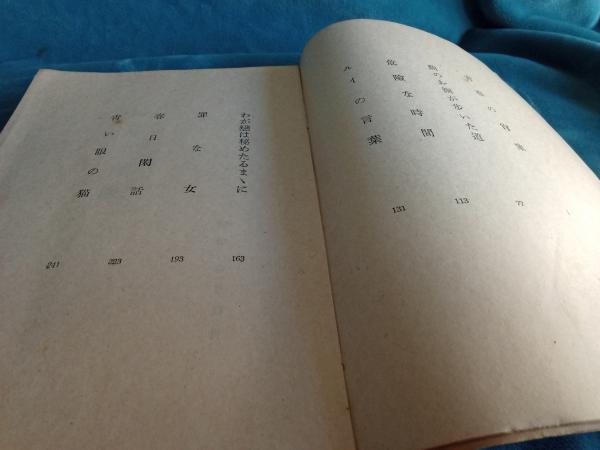 の冒険
1
が歩いた道
77
危險な時間
113
ルイの言葉
131
わが戀は秘めたるまゝに
163
罪な女
193
春日閑話
223
青い眼の猫
241